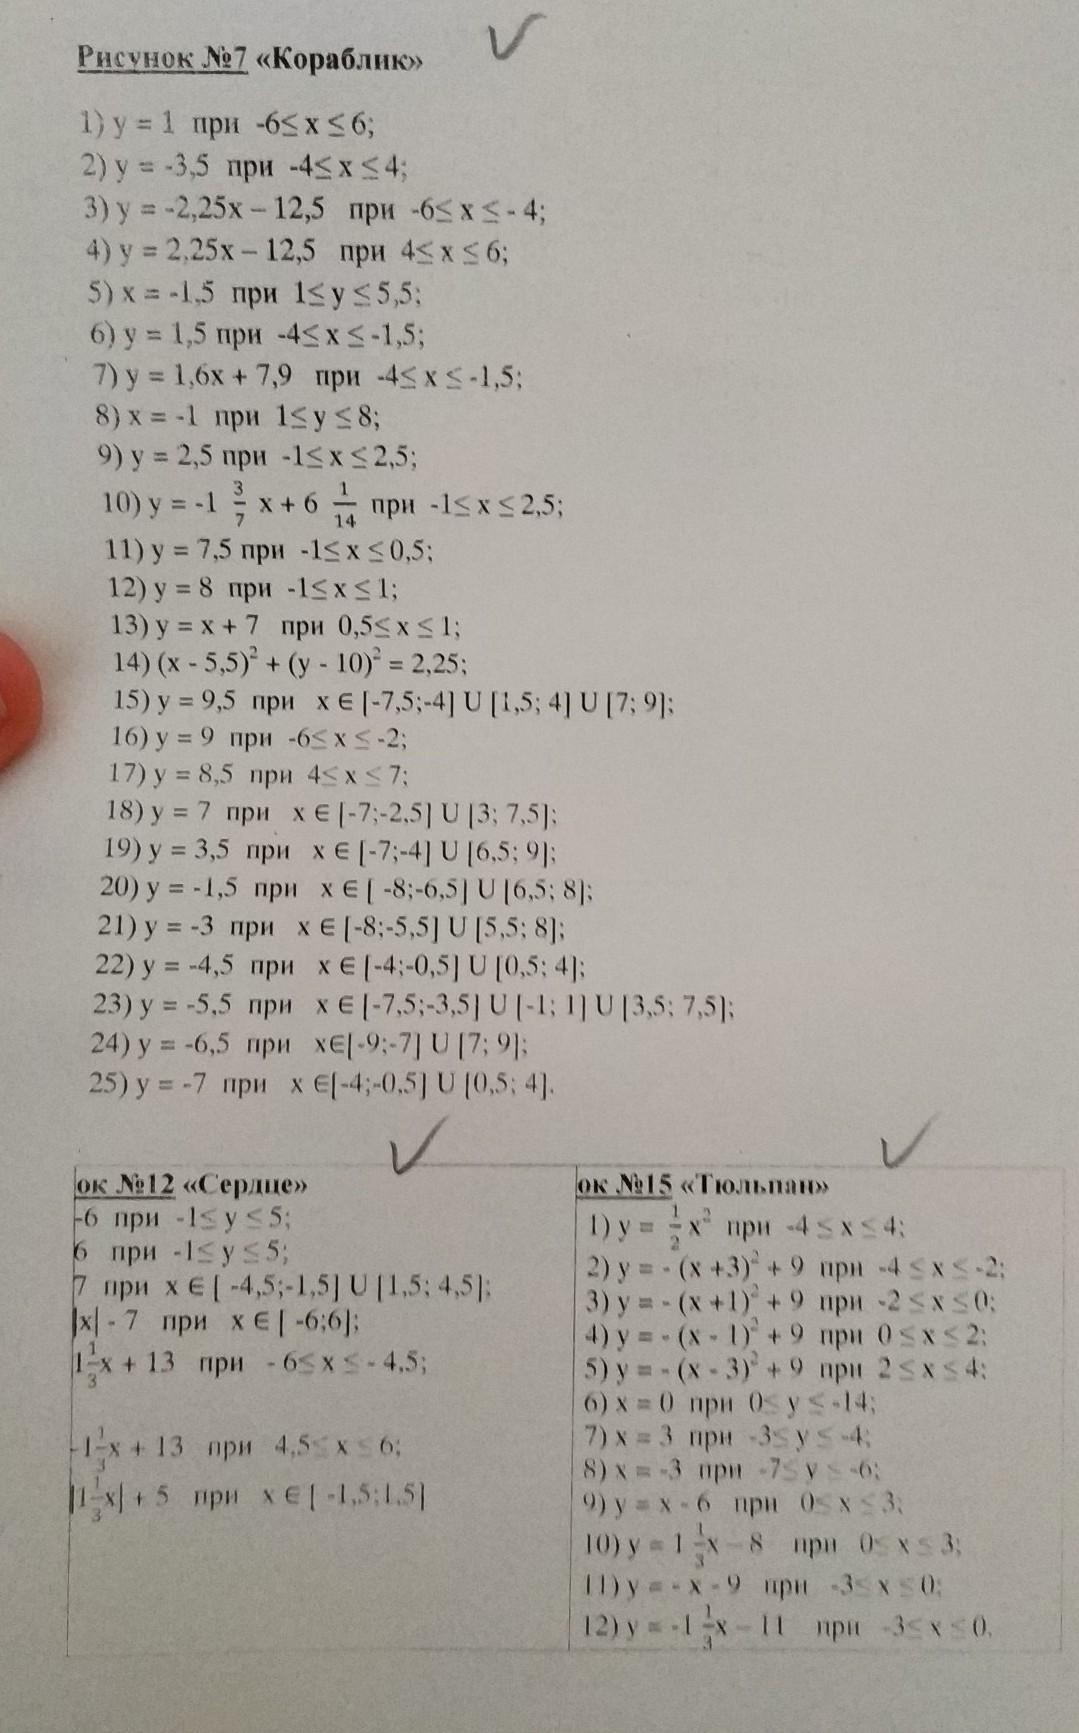 Рисунок №7 «Кораблик»
1) y = 1 при -6≤ x ≤ 6;
2) y = -3,5 при -4≤ x ≤ 4;
3) y = -2,25x – 12,5 при -6≤ x ≤ - 4;
4) y = 2,25x – 12,5 при 4≤ x ≤ 6;
5) x = -1,5 при 1≤ y ≤ 5,5;
6) y = 1,5 при -4≤ x ≤ -1,5;
7) y = 1,6x + 7,9 при -4≤ x ≤ -1,5;
8) x = -1 при 1≤ y ≤ 8;
9) y = 2,5 при -1≤ x ≤ 2,5;
10) y = -1 3/7 x + 6 1/14 при -1≤ x ≤ 2,5;
11) y = 7,5 при -1≤ x ≤ 0,5;
12) y = 8 при -1≤ x ≤ 1;
13) y = x + 7 при 0,5≤ x ≤ 1;
14) (x - 5,5)² + (y - 10)² = 2,25;
15) y = 9,5 при x ∈ [-7,5;-4] U [1,5; 4] U [7; 9];
16) y = 9 при -6≤ x ≤ -2;
17) y = 8,5 при 4≤ x ≤ 7;
18) y = 7 при x ∈ [-7;-2,5] U [3; 7,5];
19) y = 3,5 при x ∈ [-7;-4] U [6,5; 9];
20) y = -1,5 при x ∈ [ -8;-6,5] U [6,5; 8];
21) y = -3 при x ∈ [-8;-5,5] U [5,5; 8];
22) y = -4,5 при x ∈ [-4;-0,5] U [0,5; 4];
23) y = -5,5 при x ∈ [-7,5;-3,5] U [-1; 1] U [3,5; 7,5];
24) y = -6,5 при x∈[-9;-7] U [7; 9];
25) y = -7 при x ∈[-4;-0,5] U [0,5; 4].
ок №12 «Сердце»
-6 при -1≤ y ≤ 5;
6 при -1≤ y ≤ 5;
7 при x ∈ [ -4,5;-1,5] U [1,5; 4,5];
|x| - 7 при x ∈ [ -6;6];
1 1/3 x + 13 при - 6≤ x ≤ - 4,5;
-1 1/3 x + 13 при 4,5≤ x ≤ 6;
|1 1/3 x| + 5 при x ∈ [ -1,5;1,5]
ок №15 «Тюльпан»
1) y = 1/2 x² при -4 ≤ x ≤ 4;
2) y = - (x +3)² + 9 при -4 ≤ x ≤ -2;
3) y = - (x +1)² + 9 при -2 ≤ x ≤ 0;
4) y = - (x - 1)² + 9 при 0 ≤ x ≤ 2;
5) y = - (x - 3)² + 9 при 2 ≤ x ≤ 4;
6) x = 0 при 0≤ y ≤ -14;
7) x = 3 при -3≤ y ≤ -4;
8) x = -3 при -7≤ y ≤ -6;
9) y = x - 6 при 0≤ x ≤ 3;
10) y = 1 1/3 x – 8 при 0≤ x ≤ 3;
11) y = - x - 9 при -3≤ x ≤ 0;
12) y = -1 1/3 x – 11 при -3≤ x ≤ 0.